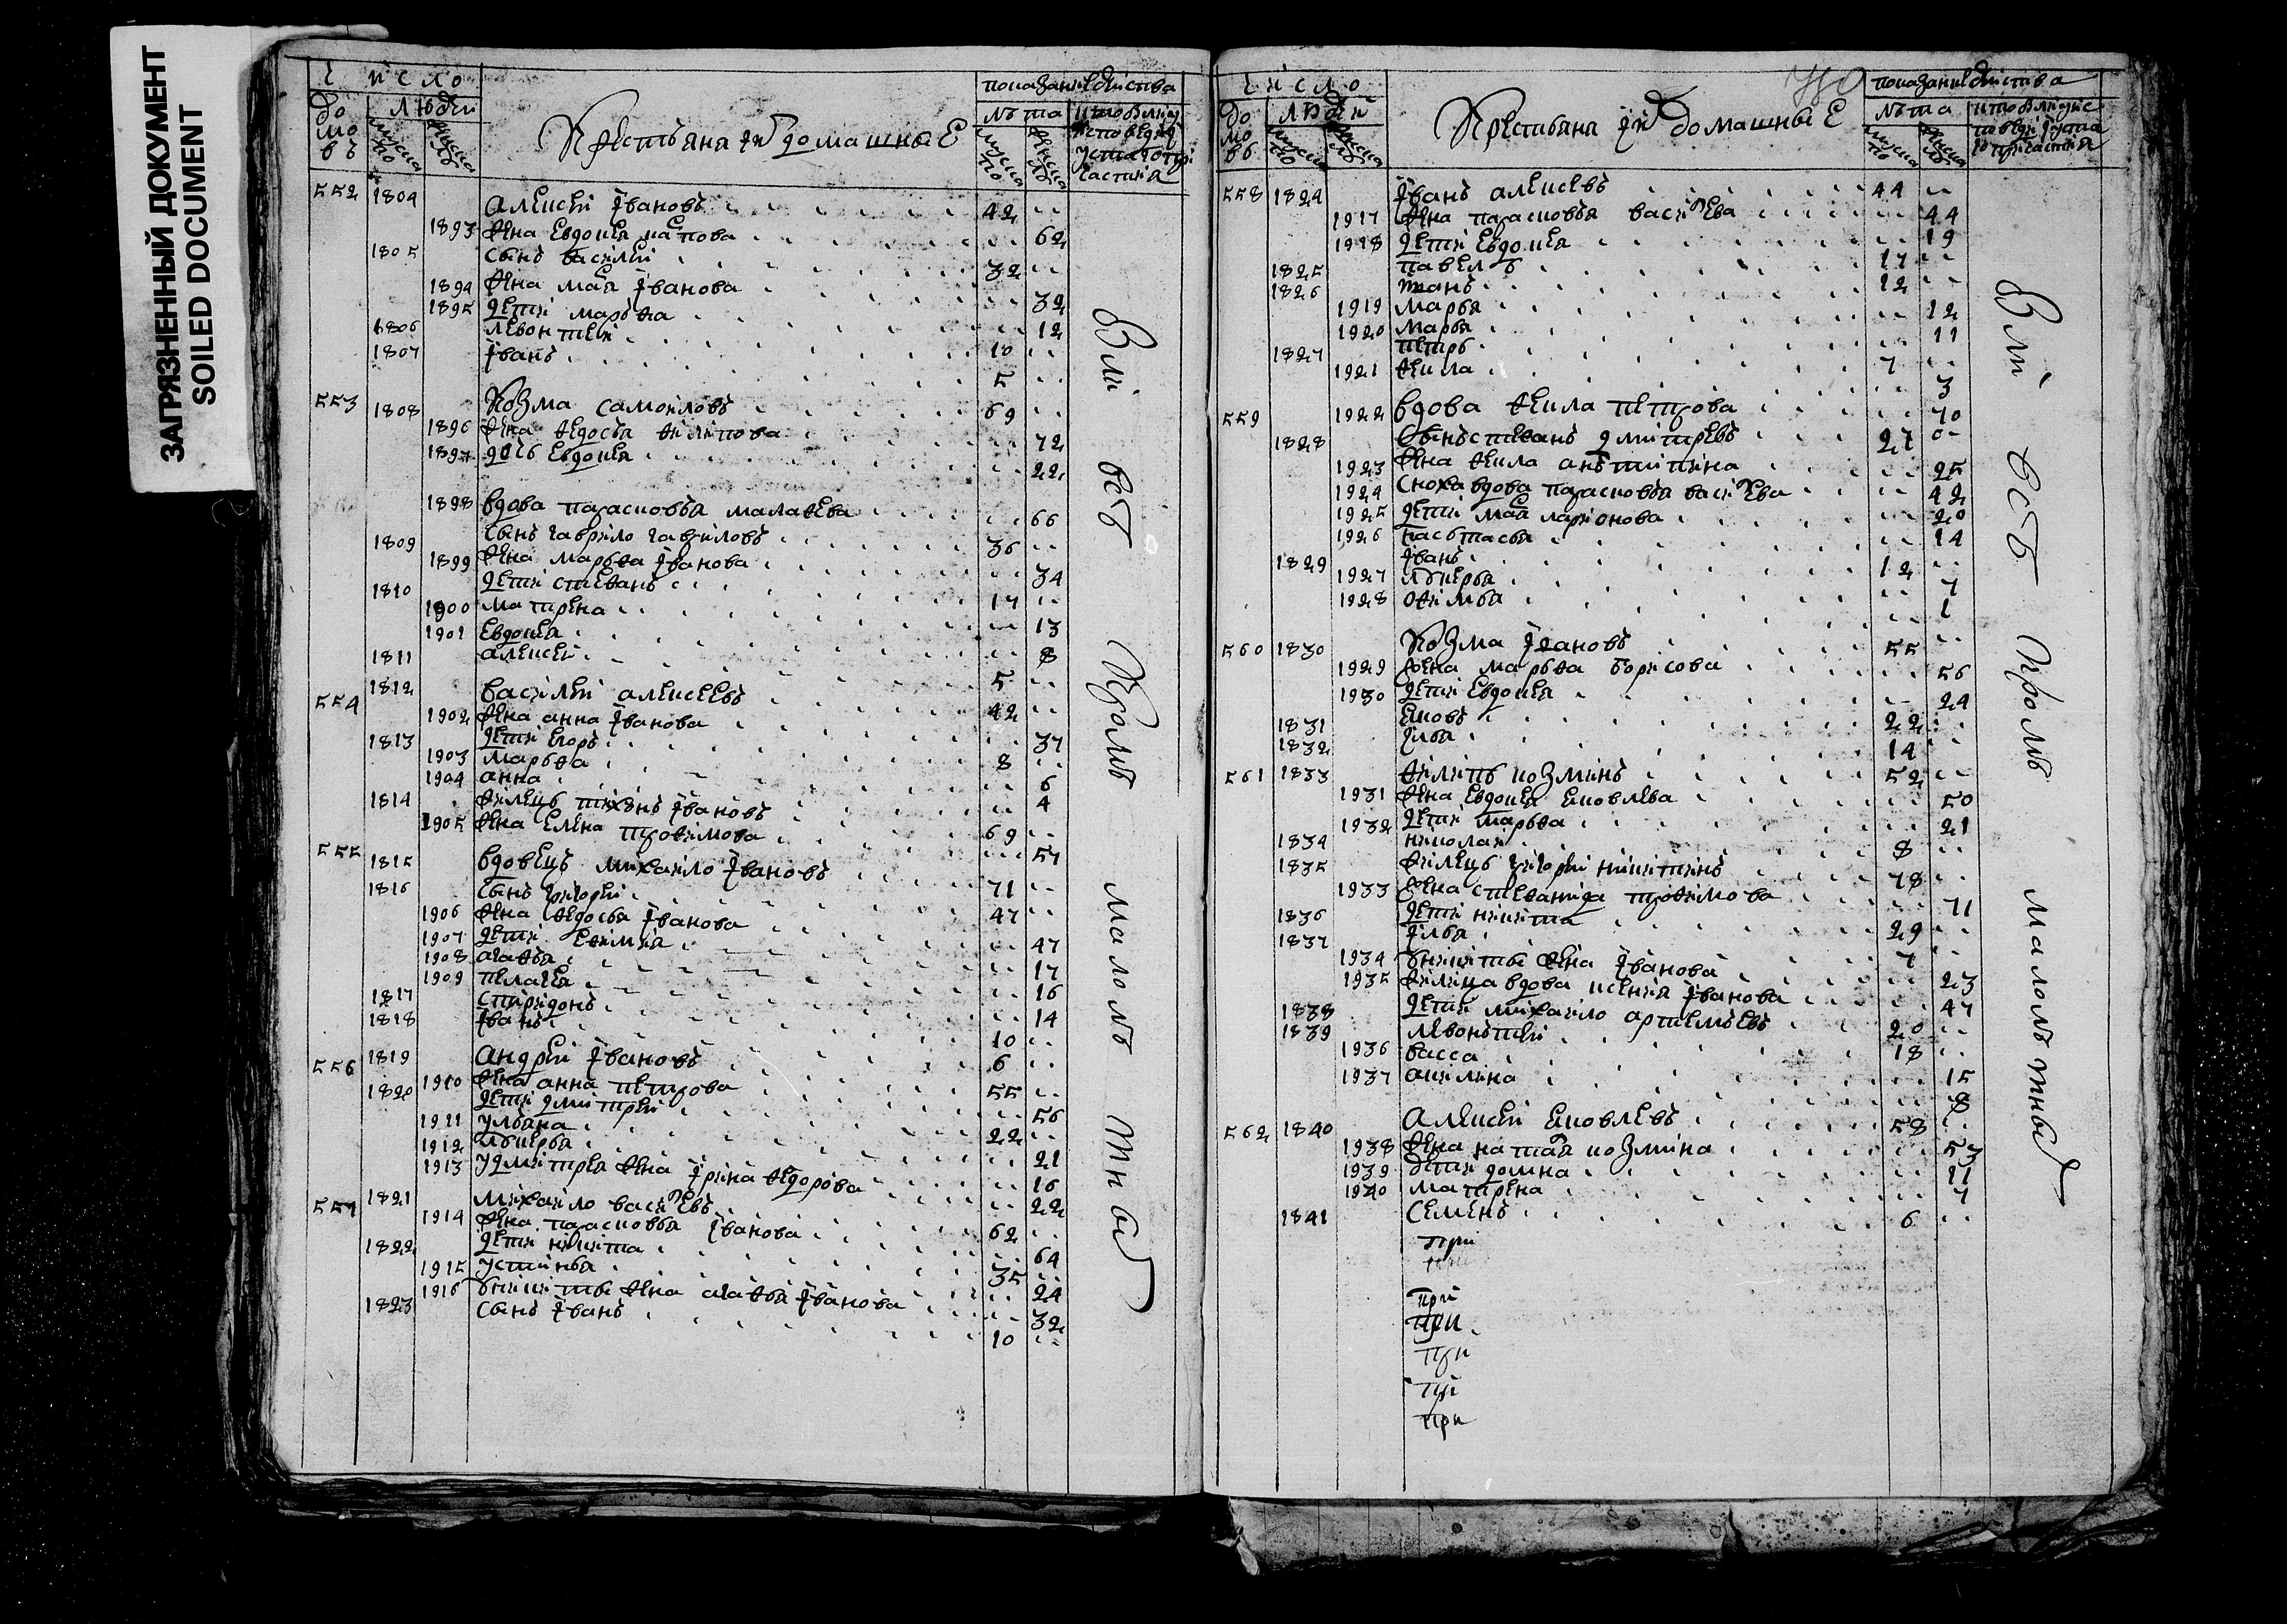 ЗАГРЯЗНЕННЫЙ ДОКУМЕНТ
SOILED DOCUMENT
число
домовъ
людей
Крестьяна и ихъ домашныЕ
показанiе действа
лѣта
552 1804 Алеѯей Iвановъ 42
1893 жена Евдокѣя 62
1805 сынъ василей 32
1894 жена маря Iванова 32
1895 дети марѳа 12
1806 левонтей 10
1807 Iванъ 5
553 1808 Козма самоиловъ 69
1896 жена ѳедосья ѳилипова 72
1897 дочь Евдокѣя 22
1898 вдова парасковья малаѳеева 66
1809 сынъ гаврило гавриловъ 36
1899 жена марѳа Iванова 34
1810 дети стеѳанъ 17
1900 матрена 13
1901 Евдокѣя 8
1811 алексей 5
554 1812 василей алексеевъ 42
1902 жена анна Iванова 37
1813 дети Егоръ 8
1903 марѳа 6
1904 анна 4
1814 тихонъ Iвановъ 69
1905 жена Елена троѳимова 57
555 1815 вдовецъ михаило Iвановъ 71
1816 сынъ григорей 47
1906 жена ѳедосья Iванова 47
1907 дети Еѳимiя 17
1908 агаѳья 16
1909 пелагѣя 14
1817 спиридонъ 10
1818 Iванъ 6
556 1819 андрей Iвановъ 55
1910 жена анна петрова 56
1820 дети дмитрей 22
1911 ульяна 21
1912 лукерья 16
1913 у дмитрея жена Iрина ѳедорова 22
557 1821 михаило василЕвъ 62
1914 жена парасковья Iванова 64
1822 дети никита 35
1915 устинья 24
1916 у никиты жена агаѳья Iванова 32
1823 сынъ Iванъ 10
Вли всѣ Кромѣ малолѣтныѯ
число
домовъ
людей
Крестьяна и ихъ домашныЕ
показанiе действа
лѣта
558 1824 Iванъ алексевъ 44
1917 жена парасковья василЕва 44
1918 дети Евдокѣя 19
1825 павелъ 17
1826 12
1919 марья 12
1920 марья 11
1827 петръ 7
1921 ѳекла 3
559 1922 вдова ѳекла петрова 70
1828 сынъ стеѳанъ дмитревъ 27
1923 жена ѳекла 25
1924 сноха вдова парасковья василЕва 42
1925 дети маря ларионова 20
1926 настасья 14
1829 Iванъ 12
1927 лукерья 7
1928 оѳимья 1
560 1830 Козма Iвановъ 55
1929 жена марѳа борисова 56
1930 дети Евдокѣя 24
1831 Ековъ 22
1832 Iлья 14
561 1833 ѳилипъ козминъ 52
1931 жена Евдокѣя Ековлева 50
1932 дети марѳа 21
1834 николай 8
1835 григорей никитинъ 78
1933 жена стеѳанида троѳимова 71
1836 дети никита 29
1837 Iлья 7
1934 у никиты жена Iванова 23
1935 вдова ксенiя Iванова 47
1838 дети михаило артемьевъ 20
1839 левонътей 18
1936 васса 15
1937 акилина 8
562 1840 Алексей Ековлевъ 58
1938 жена наталя козмина 53
1939 дети домна 11
1940 матрена 7
1841 Семенъ 6
при
при
при
при
при
при
при
Вли всѣ Кромѣ малолѣтныѯ